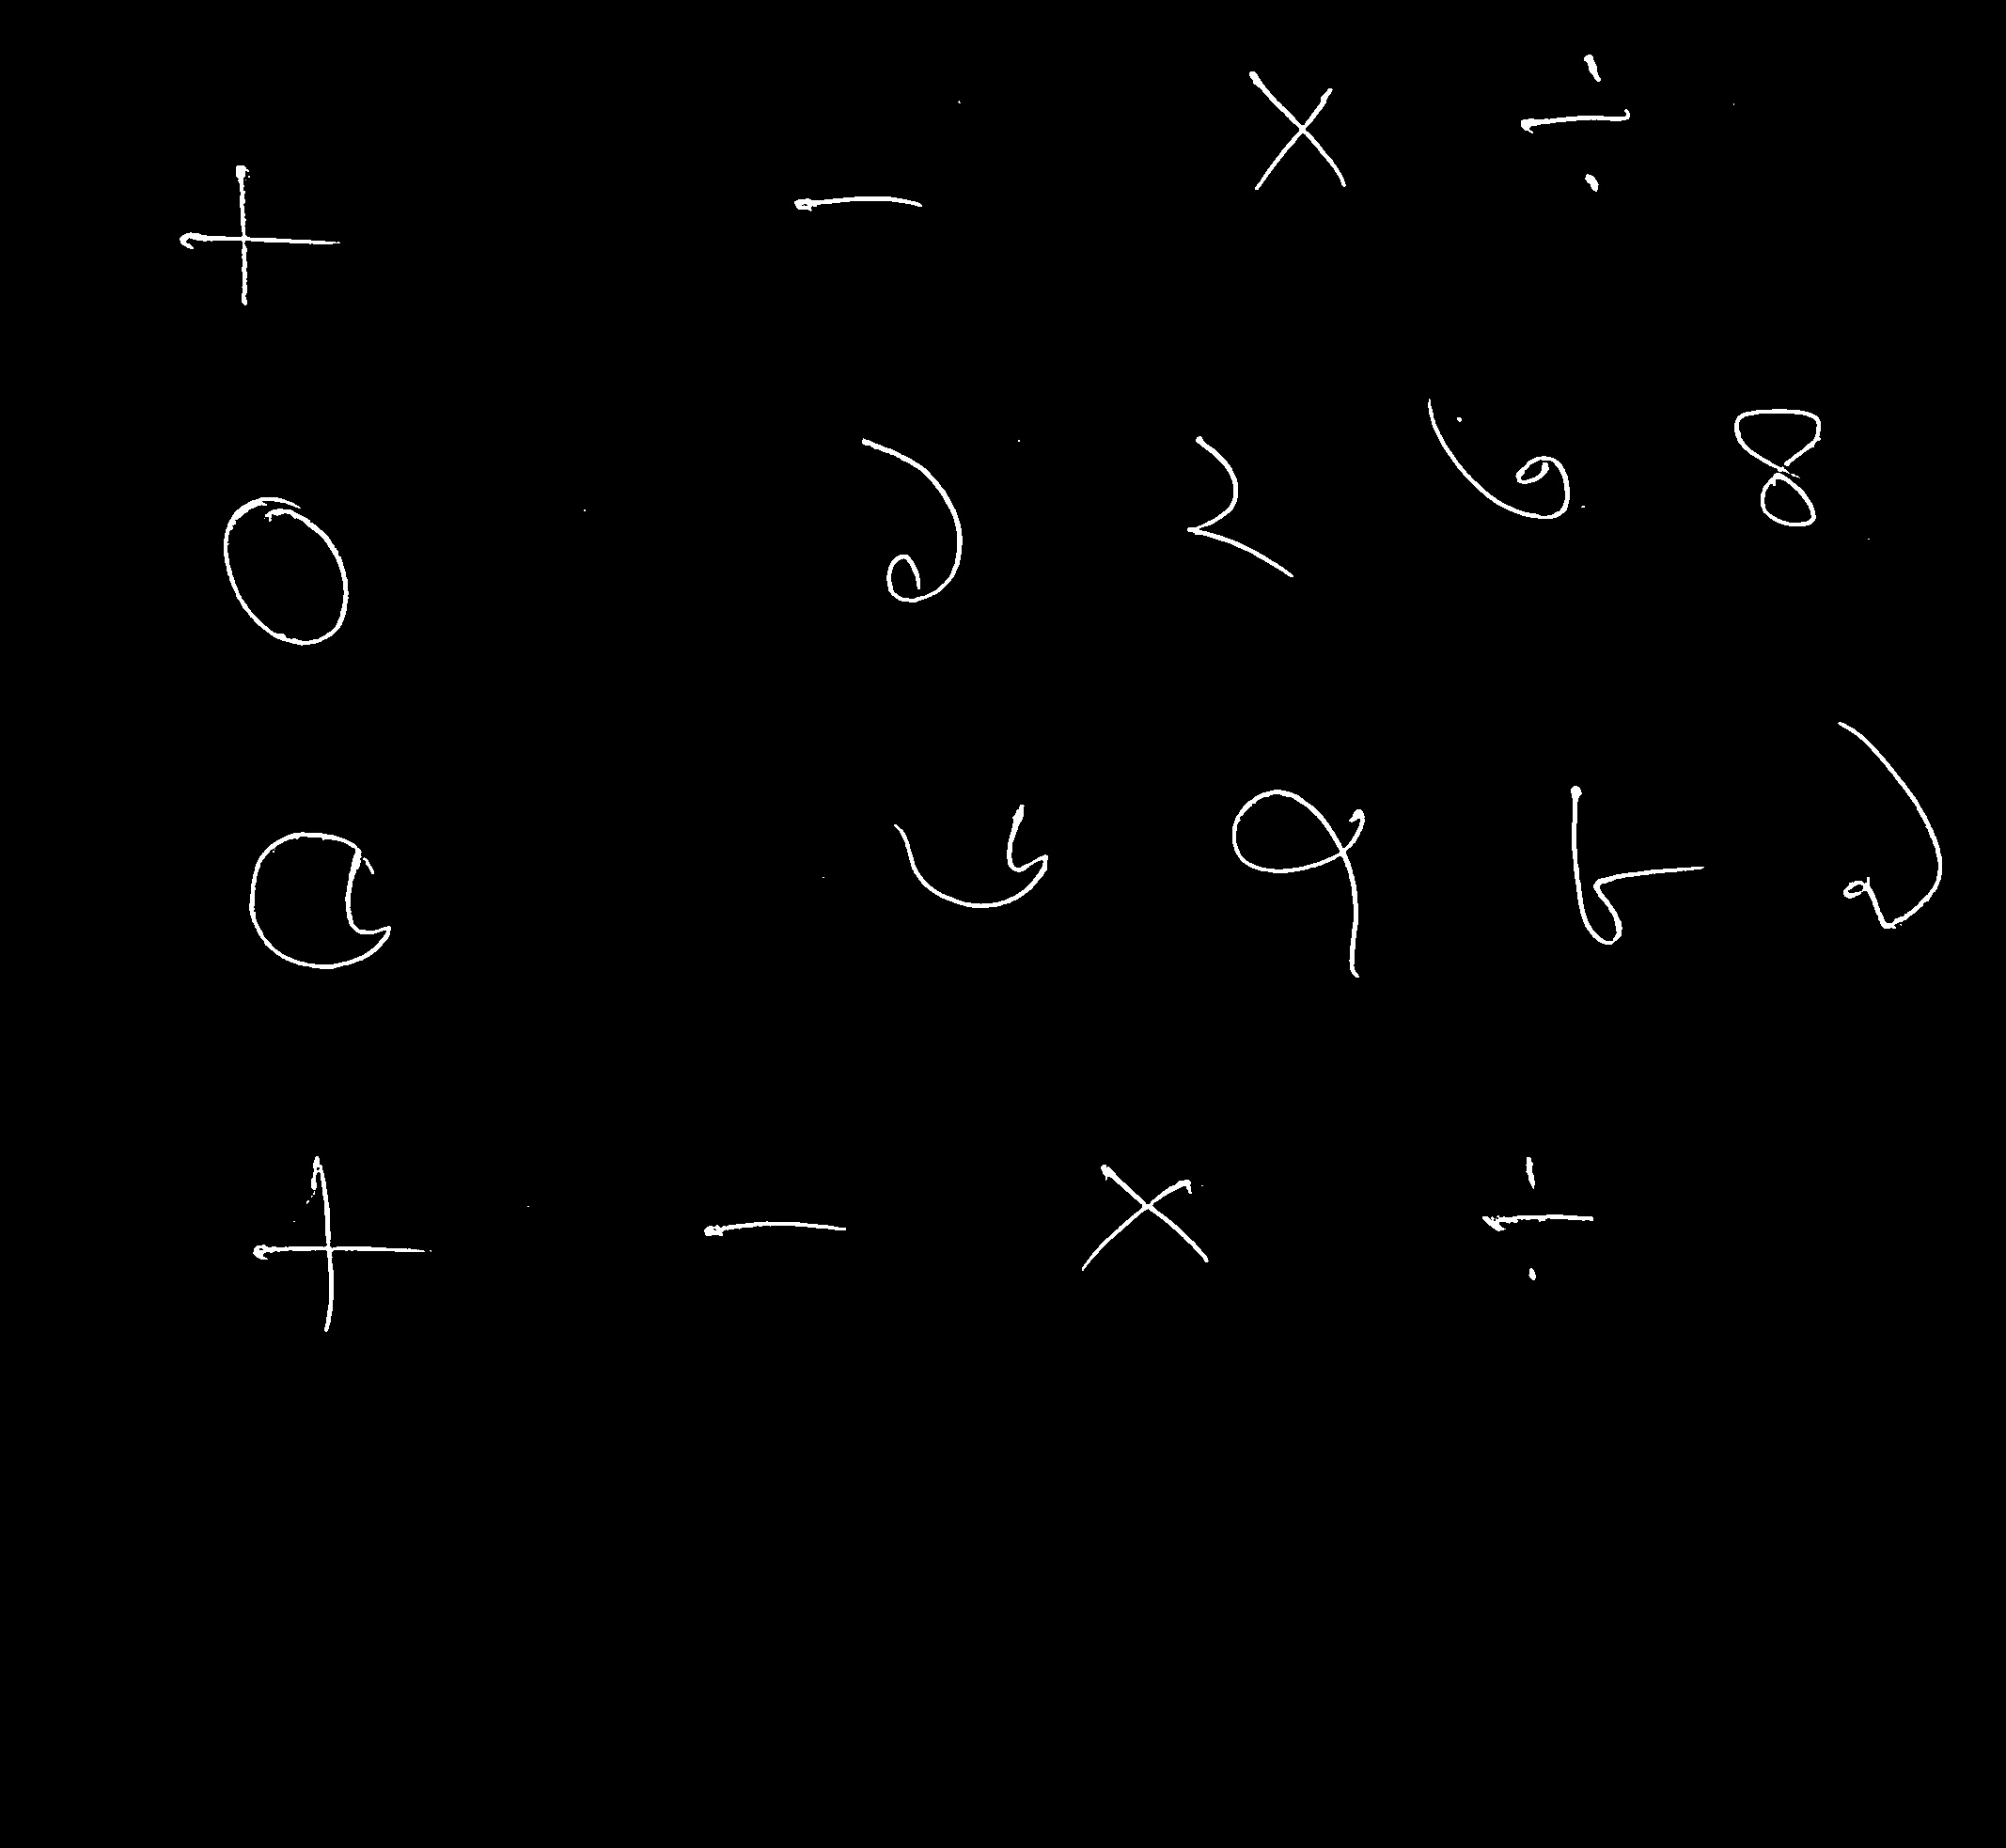 + - × ÷
০ ১ ২ ৩ ৪
৫ ৬ ৭ ৮ ৯
+ - × ÷